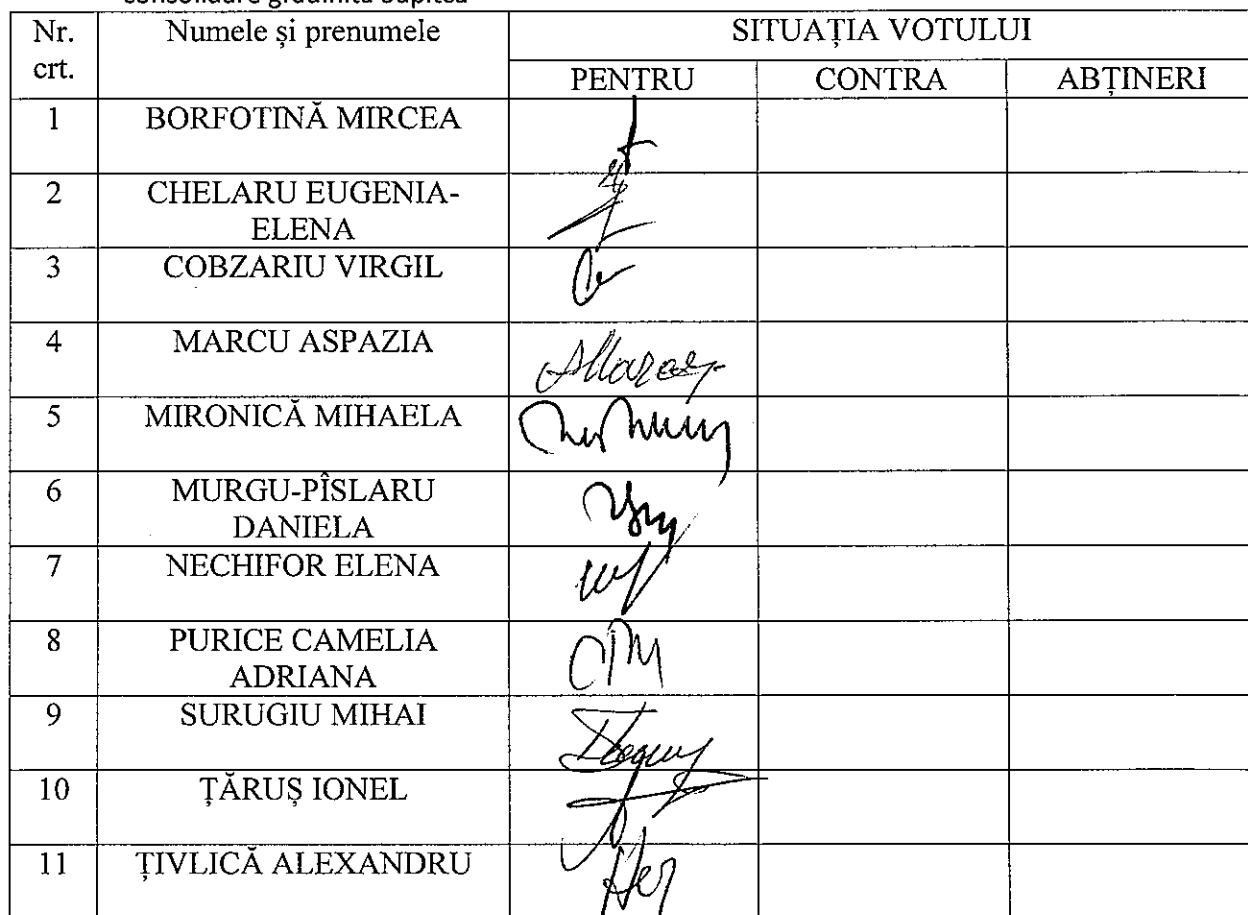 consolidare grădinița
Nr. crt. Numele și prenumele SITUAȚIA VOTULUI
PENTRU CONTRA ABȚINERI
1 BORFOTINĂ MIRCEA
2 CHELARU EUGENIA-
ELENA
3 COBZARIU VIRGIL
4 MARCU ASPAZIA
5 MIRONICĂ MIHAELA
6 MURGU-PÎSLARU
DANIELA
7 NECHIFOR ELENA
8 PURICE CAMELIA
ADRIANA
9 SURUGIU MIHAI
10 ȚĂRUȘ IONEL
11 ȚIVLICĂ ALEXANDRU